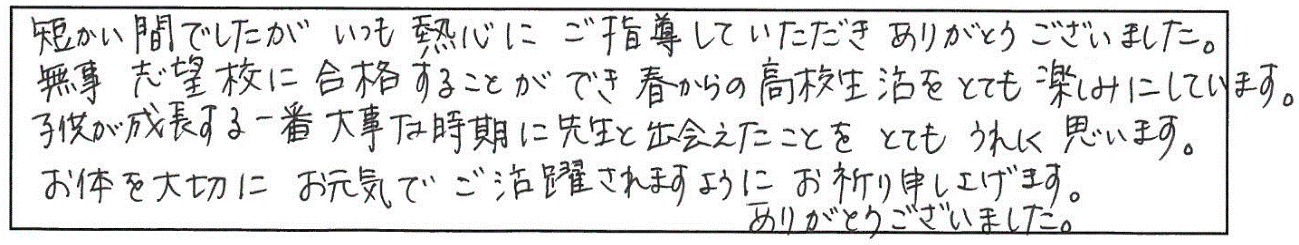 短かい間でしたが いつも 熱心に ご指導していただき ありがとうございました。
無事 志望校に 合格することが でき 春からの 高校生活を とても 楽しみにしています。
子供が成長する一番 大事な時期に 先生と出会えたことを とても うれしく 思います。
お体を大切に お元気で ご活躍されますように お祈り申し上げます。
ありがとうございました。